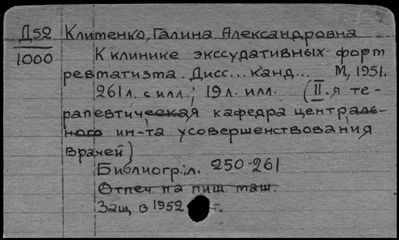 Д52 Клитенко, Галина Александровна
1000 К клинике экссудативных форт
ревтатизта. Дисс... канд... М, 1951.
261 л. с илл.; 19 л. илл. (II-я те-
рапевтическая кафедра централь-
ного ин-та усовершенствования
врачей)
Библиогр.: л. 250-261
Отпеч на пиш. таш.
Защ. в 1952 г.